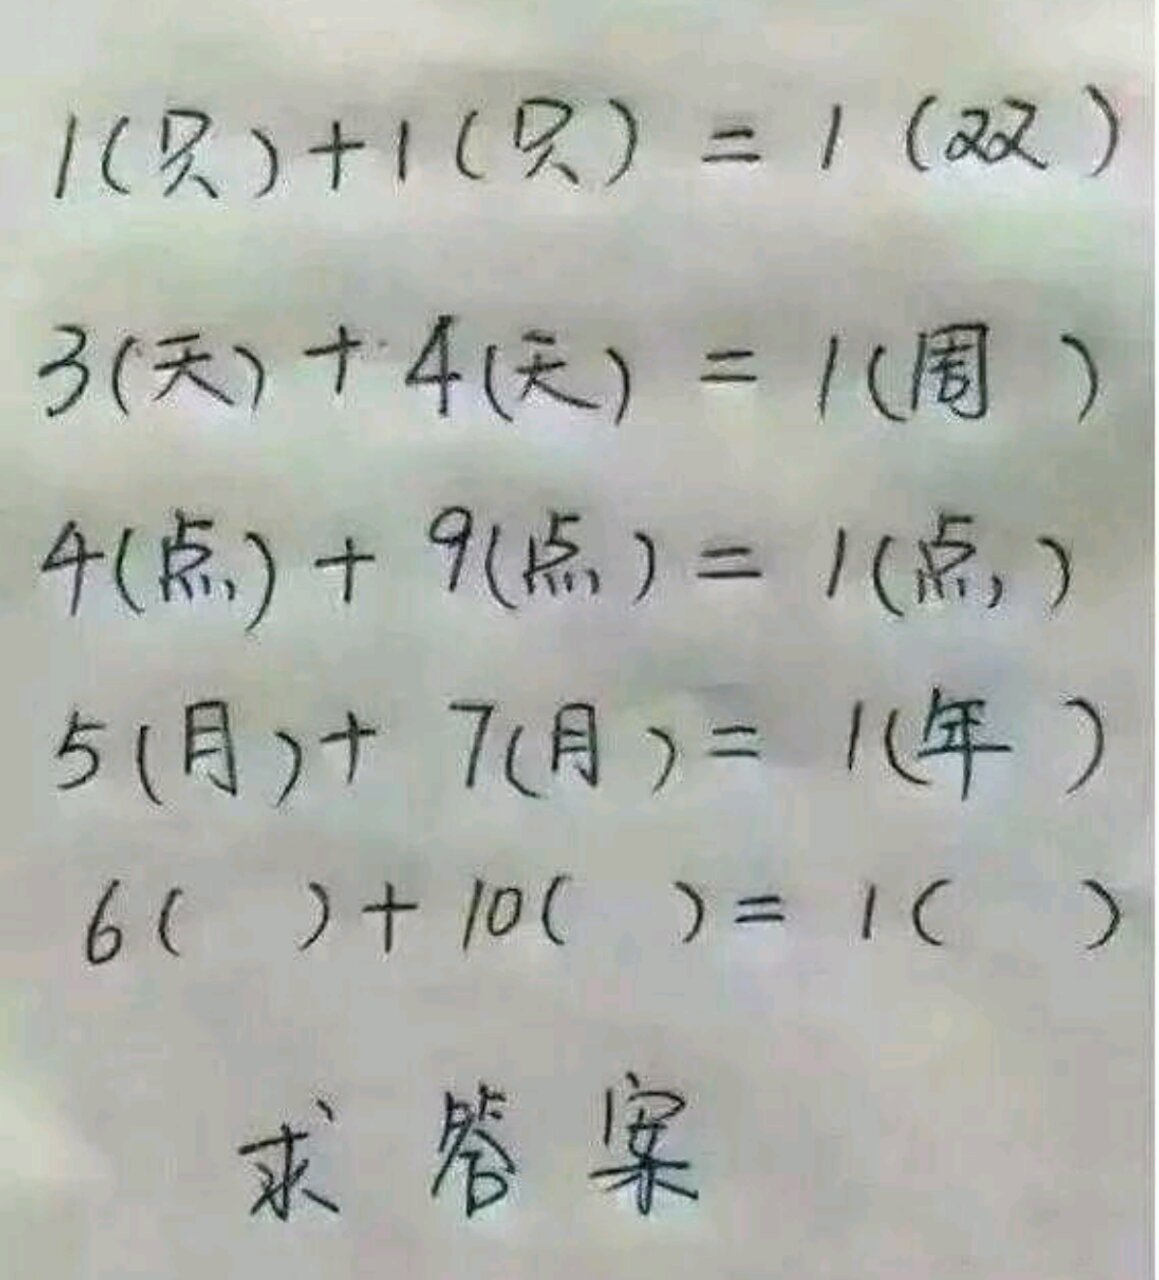 1(只)+1(只)=1(双)
3(天)+4(天)=1(周)
4(点)+9(点)=1(点)
5(月)+7(月)=1(年)
6( )+10( )=1( )
求答案